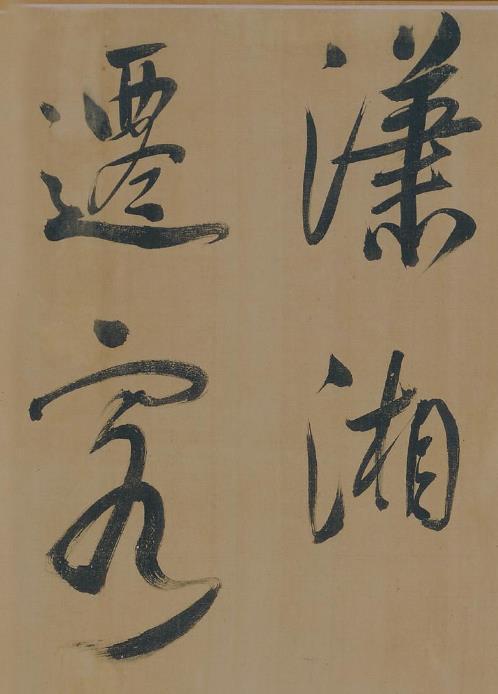 瀟湘
遷客